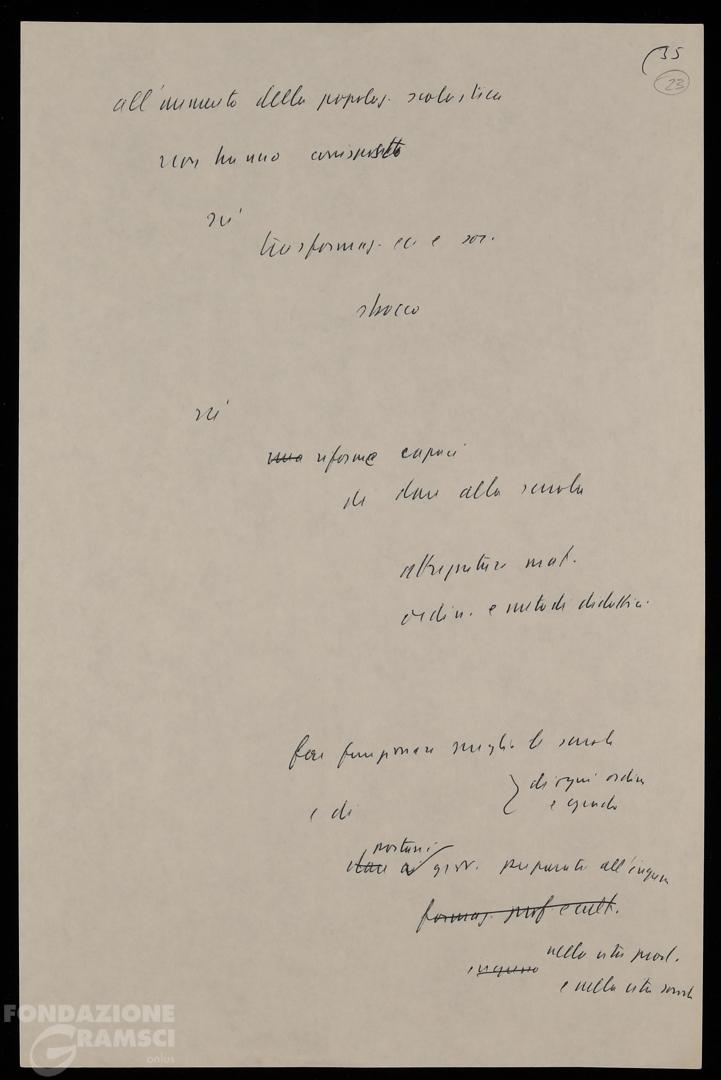 35
23
all'aumento della popolaz. scolastica
non hanno corrisposto
né
trasformaz. ec e soc.
sbocco
né
una riforme capaci
di dare alla scuola
attrezzature mat.
ordin. e metodi didattici.
far funzionare meglio le scuole
di ogni ordine
e grado
e di
portare i
dare ai giov. preparati all'ingresso
formaz. prof. e cult.
ingresso nella vita prod.
e nella vita sociale
FONDAZIONE
GRAMSCI
onlus